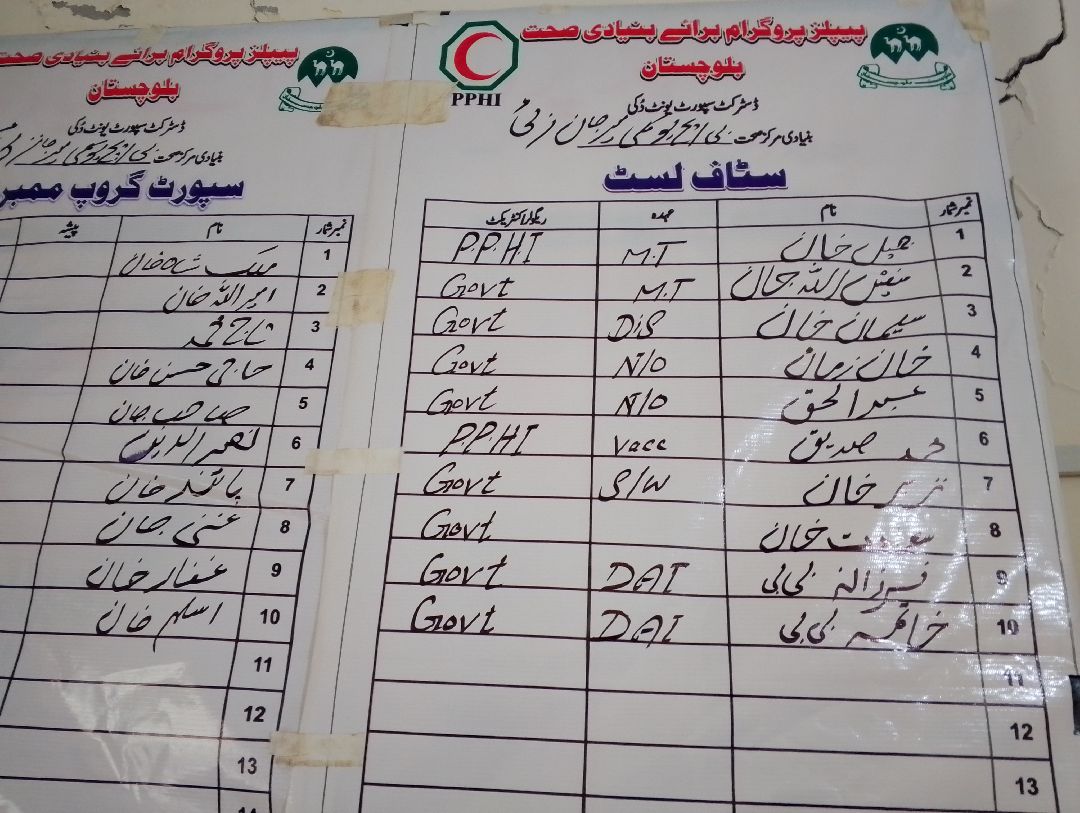 پیپلز پروگرام برائے بنیادی صحت
بلوچستان
PPHI
ڈسٹرکٹ سپورٹ یونٹ دُکی
بنیادی مرکز صحت بی ایچ یو میر جان زئی
سٹاف لسٹ
نمبر شمار نام عہدہ ریگولر/کنٹریکٹ
1 خان M.T P.P.H.I
2 اللہ M.T Govt
3 سلیمان خان DiS Govt
4 خان زمان N/O Govt
5 عبدالحق N/O Govt
6 محمد صدیق Vacc P.P.H.I
7 خان S/W Govt
8 خان Govt
9 فرزانہ بی بی DAI Govt
10 بی بی DAI Govt
11
12
13
پیپلز پروگرام برائے بنیادی صحت
بلوچستان
ڈسٹرکٹ سپورٹ یونٹ دُکی
بنیادی مرکز صحت بی ایچ یو میر جان
سپورٹ گروپ ممبر
نمبر شمار نام پیشہ
1 ملک شاہ خان
2 امیر اللہ خان
3 تاج محمد
4 حاجی حسن خان
5 صاحب جان
6 نصیر الدین
7 پائند خان
8 غنی جان
9 غفار خان
10 اسلم خان
11
12
13
14